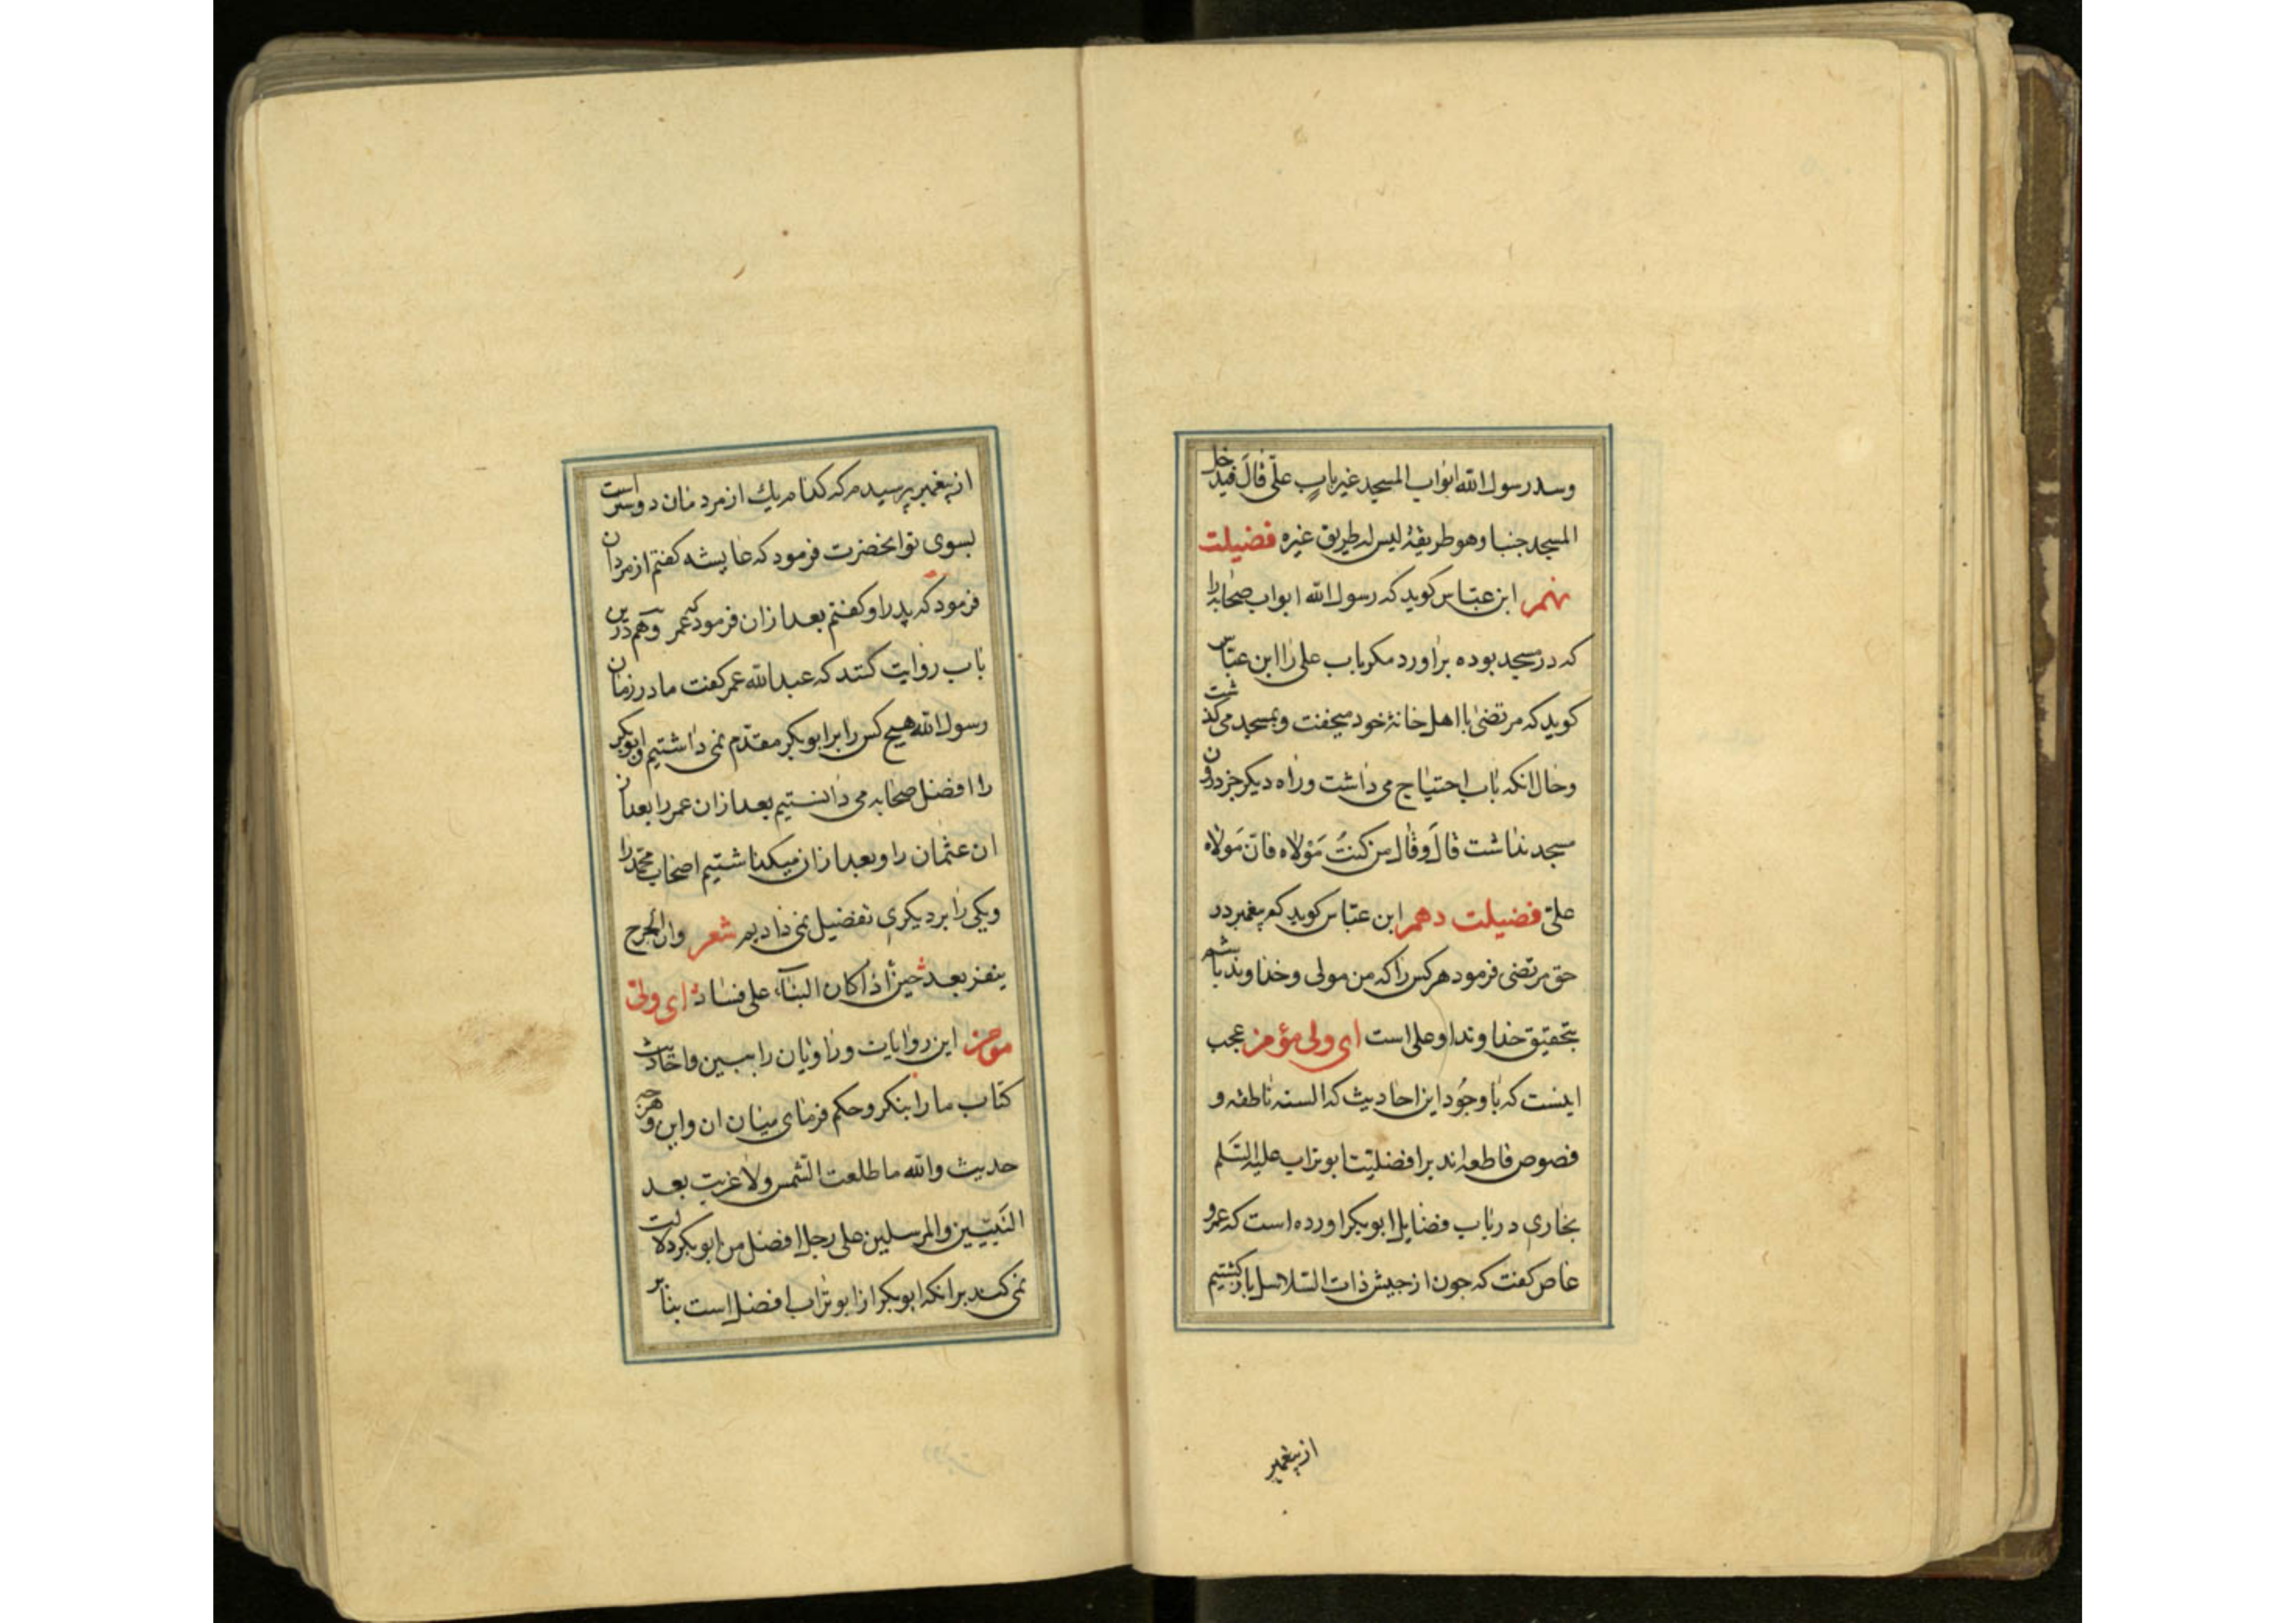 وسد رسول الله ابواب المسجد غیر باب علی قال فیدخل
المسجد جنبا وهو طریقه لیس له طریق غیره فضیلت
نهم ابن عباس کوید که رسول الله ابواب صحابه را
که در مسجد بوده براورد مکر باب علی را ابن عباس
کوید که مرتضی با اهل خانهٔ خود میخفت و بمسجد می کذشت
وحال انکه باب احتیاج می داشت وراه دیکر جز درون
مسجد نداشت قال وقال من کنت مولاه فان مولاه
علی فضیلت دهم ابن عباس کوید که پیغمبر در
حق مرتضی فرمود هر کس را که من مولی وخداوند باشم
بتحقیق خداوند او علی است ای ولی مؤمن عجب
اینست که با وجود این احادیث که السنه ناطقه و
فصوص قاطعه اند بر افضلیت ابوتراب علیه السلم
بخاری در باب فضایل ابوبکر اورده است که عمرو
عاص کفت که جون از جیش ذات السلاسل باز کشتیم
از پیغمبر
از پیغمبر پرسیدم که کدام یك از مردمان دوستر است
بسوی تو انحضرت فرمود که عایشه کفتم از مردان
فرمود که پدر او کفتم بعد ازان فرمود که عمر وهم درین
باب روایت کنند که عبد الله عمر کفت ما در زمان
رسول الله هیچ کس را برابر ابوبکر مقدم نمی داشتیم وابوبکر
را افضل صحابه می دانستیم بعد ازان عمر را بعد از
ان عثمان را وبعد ازان میکذاشتیم اصحاب محمد را
ویکی را بر دیکری تفضیل نمی دادیم شعر وان الجرح
ینفر بعد حین اذا کان البناء علی فساد ای ولی
مومن این روایات وراویان را ببین واحادیث
کتاب ما را بنکر وحکم فرمای میان ان واین وهرچه
حدیث والله ما طلعت الشمس ولا غربت بعد
النبیین والمرسلین علی رجل افضل من ابوبکر دلالت
نمی کند بر انکه ابوبکر از ابوتراب افضل است بنابر